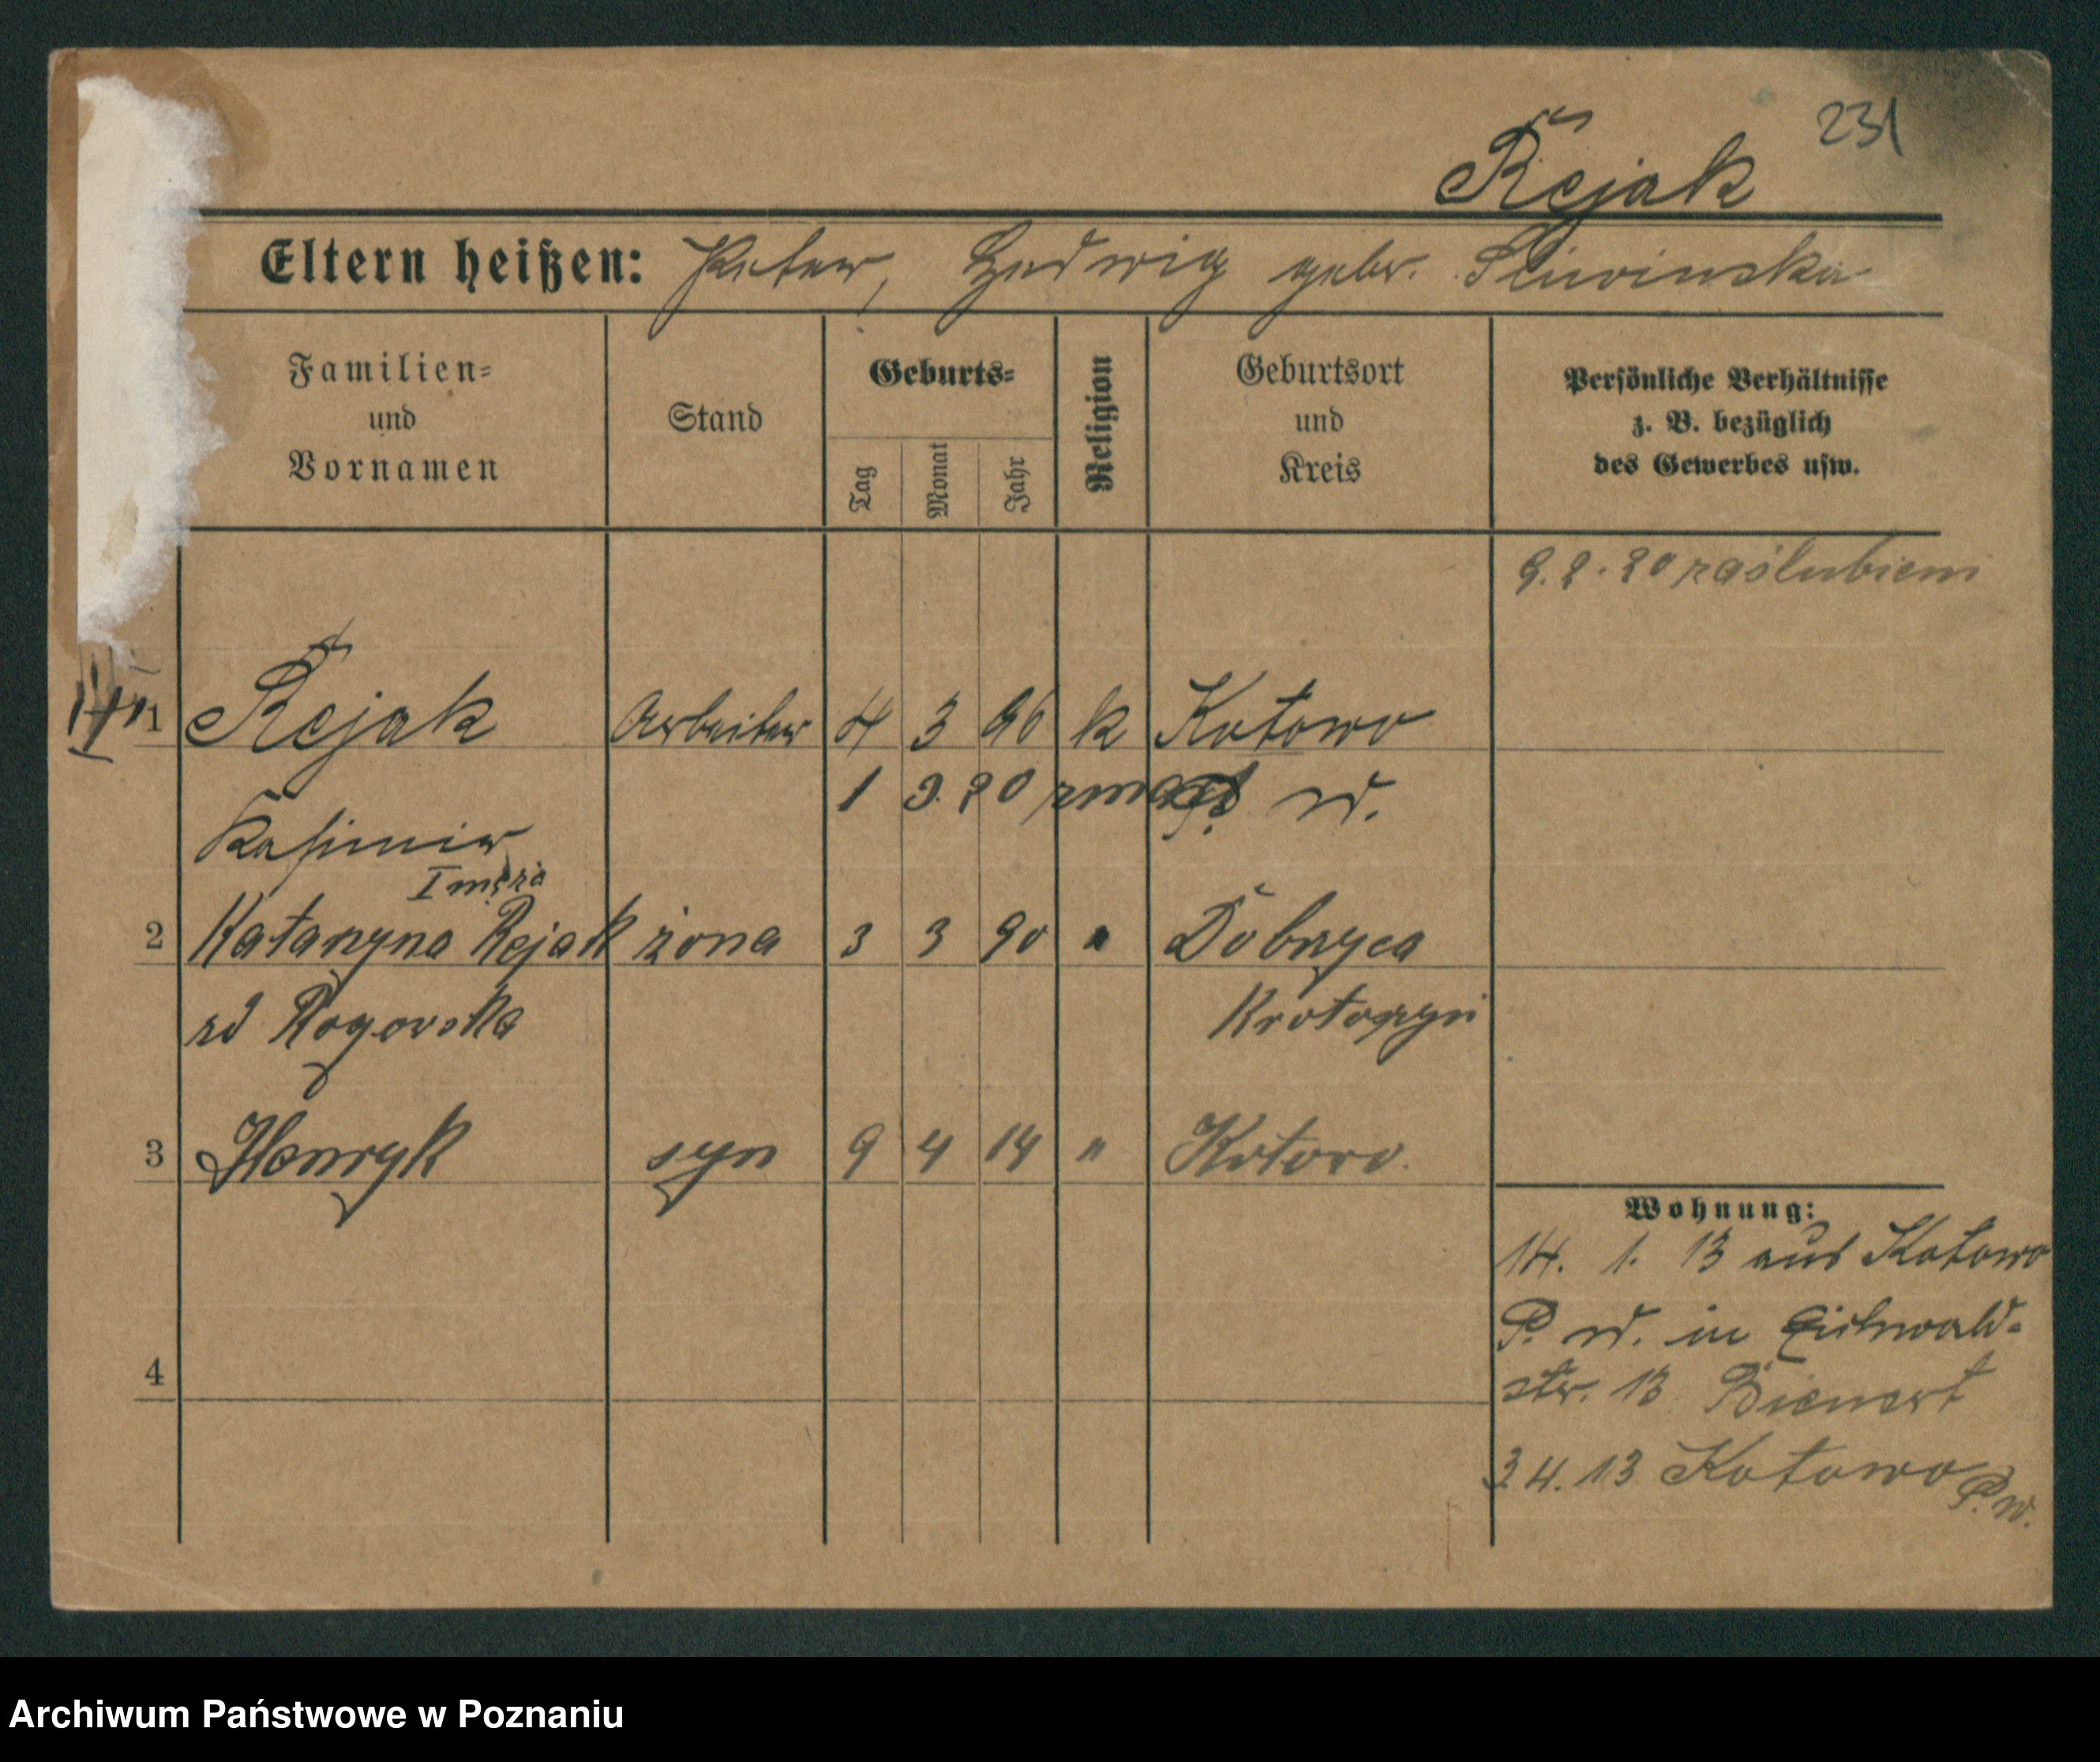 231
Rejak
Eltern heißen: Peter, Hedwig gebr. Sliwinska
Familien=
und
Vornamen
Stand
Geburts=
Tag
Monat
Jahr
Religion
Geburtsort
und
Kreis
Persönliche Verhältnisse
z. B. bezüglich
des Gewerbes usw.
9.2.20 zaślubieni
1 Rejak Arbeiter 4 3 96 k Kotowo
1 3. 20 P. W.
Kasimir
I męża
2 Katarzyna Rejak żona 3 3 90 " Dobrzyca
zd Rogowska Krotoszyn
3 Henryk syn 9 4 14 " Kotowo.
Wohnung:
14. 1. 13 aus Kotowo
P. W. in Eichwald-
str. 13 Bienert
4
3.4.13 Kotowo P. W.
Archiwum Państwowe w Poznaniu